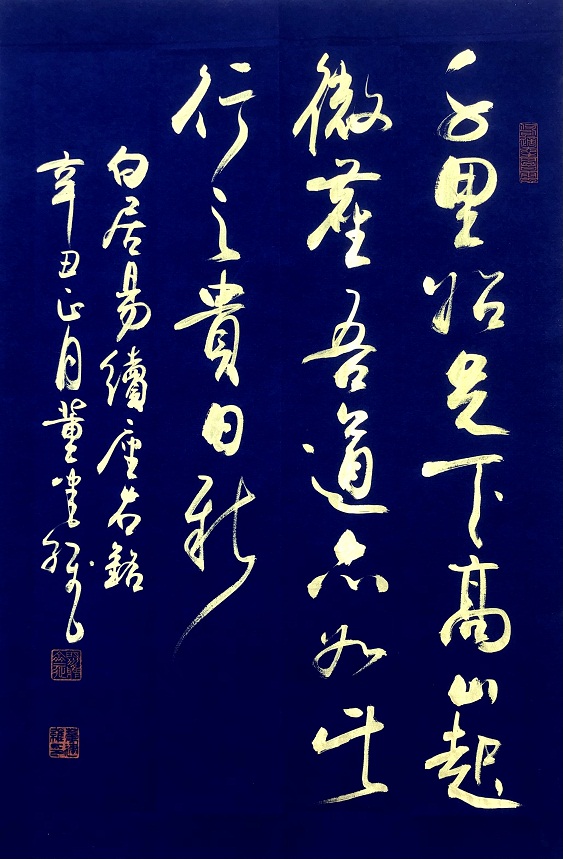 千里始足下高山起
微塵吾道亦如此
行之貴日新
白居易續座右銘
辛丑正月董